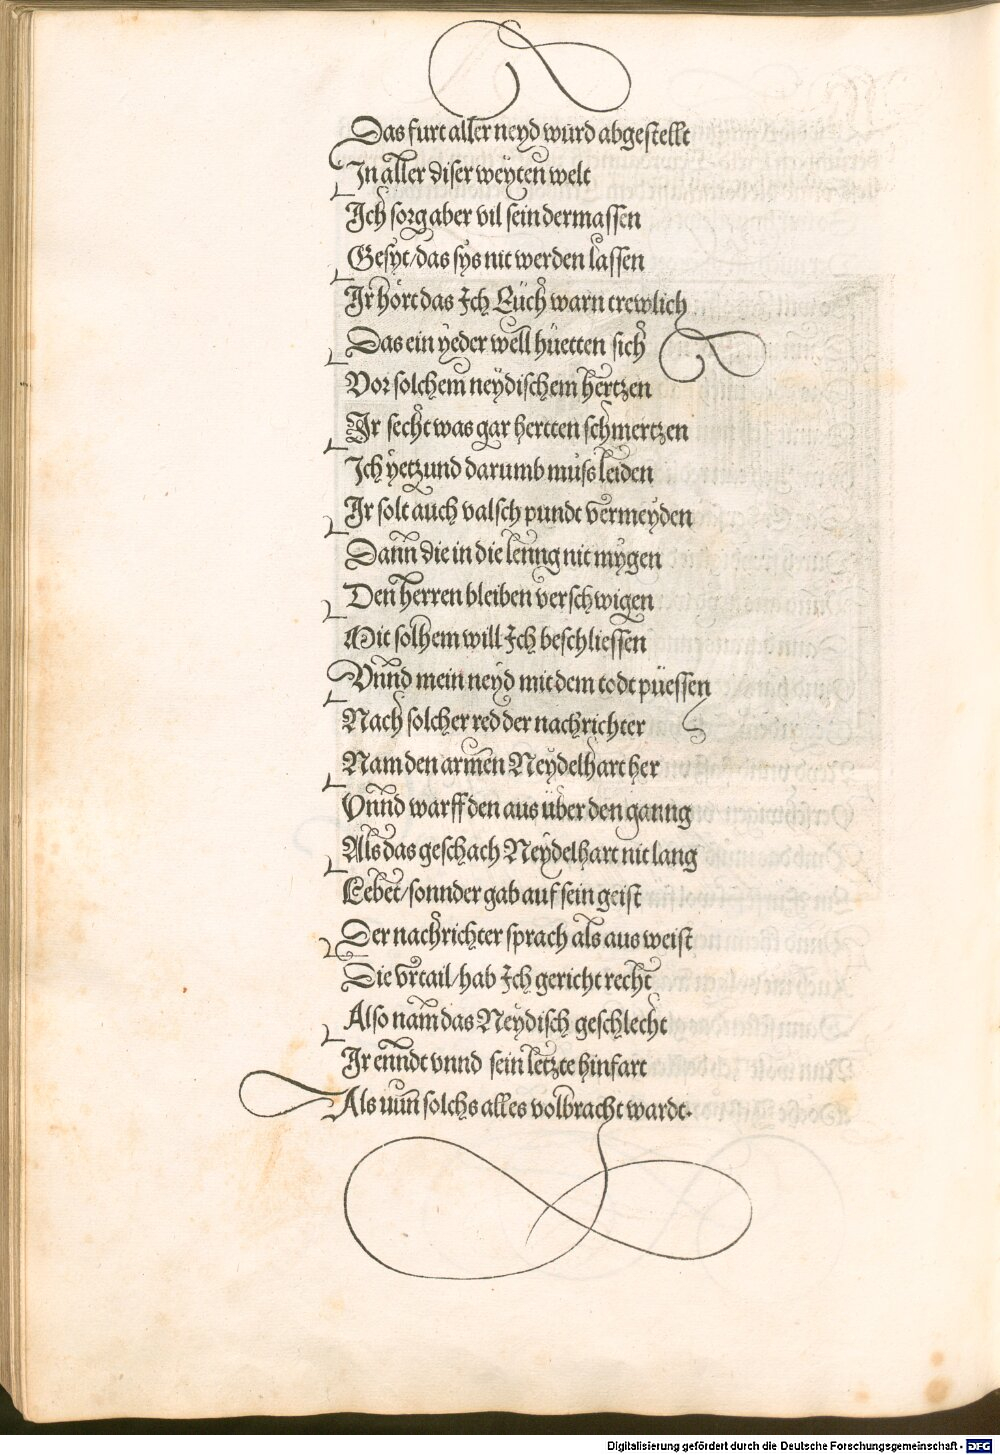 Das furt aller neyd würd abgestellt
In aller diser weÿten welt
Ich sorg aber vil sein dermassen
Gesÿt/das sÿs nit werden lassen
Ir hört das Ich Eüch warn trewlich
Das ein ÿeder well hüetten sich
Vor solchem neÿdischem hertzen
Ir secht was gar hertten schmertzen
Ich ÿetzund darumb muss leiden
Ir solt auch valsch pundt vermeÿden
Dann die in die lenng nit mÿgen
Den herren bleiben verschwigen
Mit solhem will Ich beschliessen
Vnnd mein neÿd mit dem todt püessen
Nach solcher red der nachrichter
Nam den armen Neÿdelhart her
Vnnd warff den aus über den ganng
Als das geschach Neÿdelhart nit lang
Lebet/sonnder gab auf sein geist
Der nachrichter sprach als ausweist
Die vrtail/hab Ich gericht recht
Also nam das Neÿdisch geschlecht
Ir enndt vnnd sein letzte hinfart
Als nun solchs alles volbracht wardt.
Digitalisierung gefördert durch die Deutsche Forschungsgemeinschaft - DFG